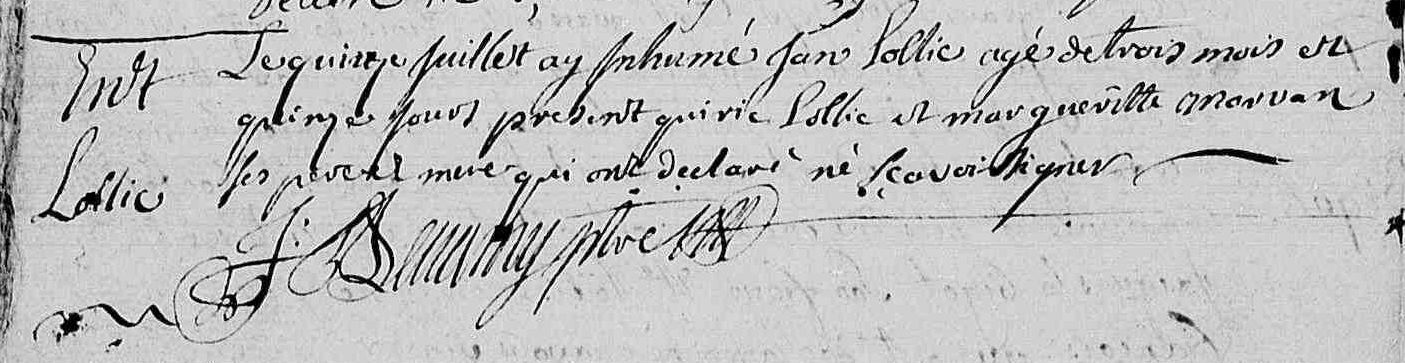 Ent Le quinze juillet ay Inhumé Jan Lollic agé de trois mois et
quinze jours present quirie Lollic et margueritte Morvan
Lollic ses pere et mere qui ont declaré né sçavoir signer
J: ptre